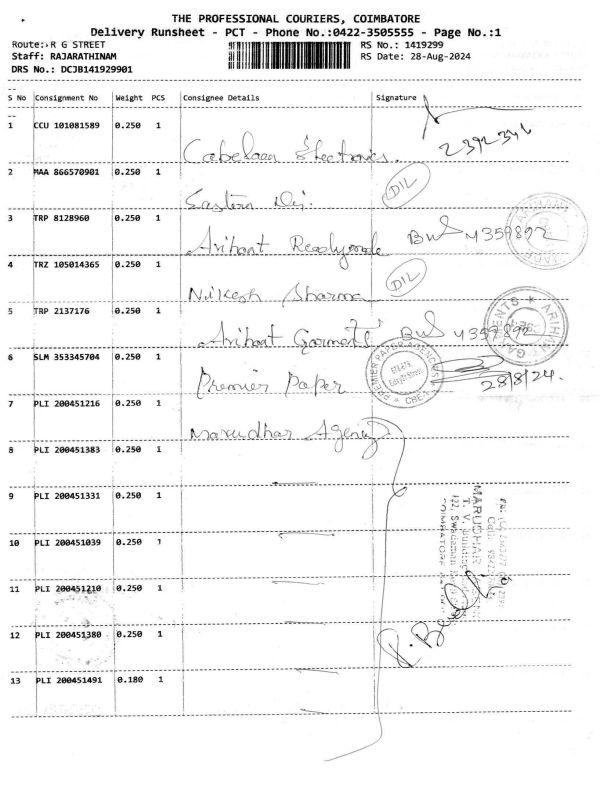 THE PROFESSIONAL COURIERS, COIMBATORE
Delivery Runsheet - PCT - Phone No.:0422-3505555 - Page No.:1
Route: R G STREET RS No.: 1419299
Staff: RAJARATHINAM RS Date: 28-Aug-2024
DRS No.: DCJB141929901
S No Consignment No Weight PCS Consignee Details Signature
1 CCU 101081589 0.250 1
Electronics. 2392346
2 MAA 866570901 0.250 1
Eastern DIL
3 TRP 8128960 0.250 1
Arihant Readymade 4359892
4 TRZ 105014365 0.250 1
Nikesh Sharma DIL
5 TRP 2137176 0.250 1
Arihant Garments 4359892
6 SLM 353345704 0.250 1
Premier Paper PREMIER PAPER AGENCIES CBE 28/8/24.
7 PLI 200451216 0.250 1
Marudhar Agency
8 PLI 200451383 0.250 1
9 PLI 200451331 0.250 1
MARUDHAR
10 PLI 200451039 0.250 1
11 PLI 200451210 0.250 1
12 PLI 200451380 0.250 1
13 PLI 200451491 0.180 1